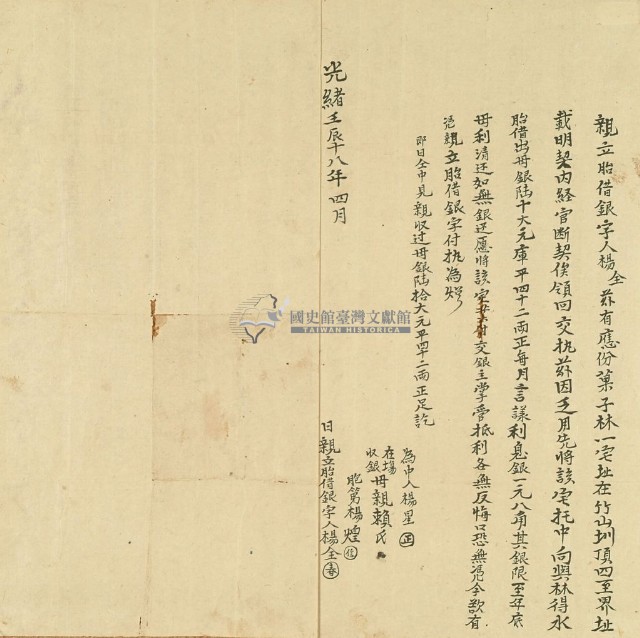 親立胎借銀字人楊全茲有應份菓子林一宅址在竹山圳頂四至界址
載明契內経官断契俟領回交执茲因乏用先將該宅托中向與林得水
胎借出母銀陆十大元庫平四十二兩正每月言議利息銀一元八角其銀限至年底
母利清还如無銀还應將該宅交銀主掌管抵利各無反悔口恐無憑今欲有
憑親立胎借銀字付执為炤
即日仝中見親收过母銀陆拾大元平四十二兩正足訖
為中人楊星
在場收銀母親賴氏
胞第楊煌
光緒壬辰十八年四月
日親立胎借銀字人楊全
國史館臺灣文獻館
TAIWAN HISTORICA